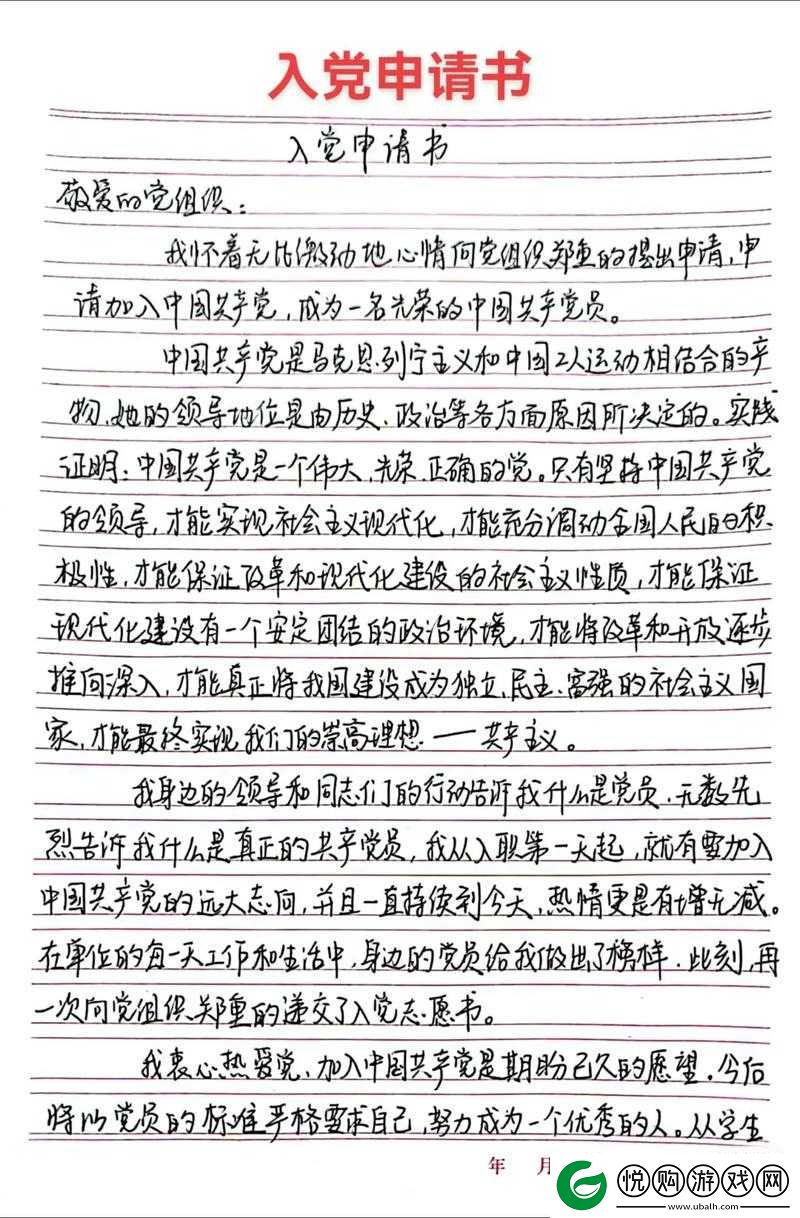 入党申请书
入党申请书
敬爱的党组织:
我怀着无比激动地心情向党组织郑重的提出申请,申
请加入中国共产党,成为一名光荣的中国共产党员。
中国共产党是马克思.列宁主义和中国工人运动相结合的产
物,她的领导地位是由历史、政治等各方面原因所决定的。实践
证明:中国共产党是一个伟大、光荣、正确的党。只有坚持中国共产党
的领导,才能实现社会主义现代化,才能充分调动全国人民的积
极性,才能保证改革和现代化建设的社会主义性质,才能保证
现代化建设有一个安定团结的政治环境,才能将改革和开放逐步
推向深入,才能真正将我国建设成为独立、民主、富强的社会主义国
家,才能最终实现我们的崇高理想——共产主义。
我身边的领导和同志们的行动告诉我什么是党员,无数先
烈告诉我什么是真正的共产党员,我从入职第一天起,就有要加入
中国共产党的远大志向,并且一直持续到今天,热情更是有增无减。
在单位的每一天工作和生活中,身边的党员给我做出了榜样.此刻,再
一次向党组织郑重的递交了入党志愿书。
我衷心热爱党,加入中国共产党是期盼已久的愿望。今后
将以党员的标准严格要求自己,努力成为一个优秀的人。从学生
年 月
悦购游戏网
www.ubalh.com